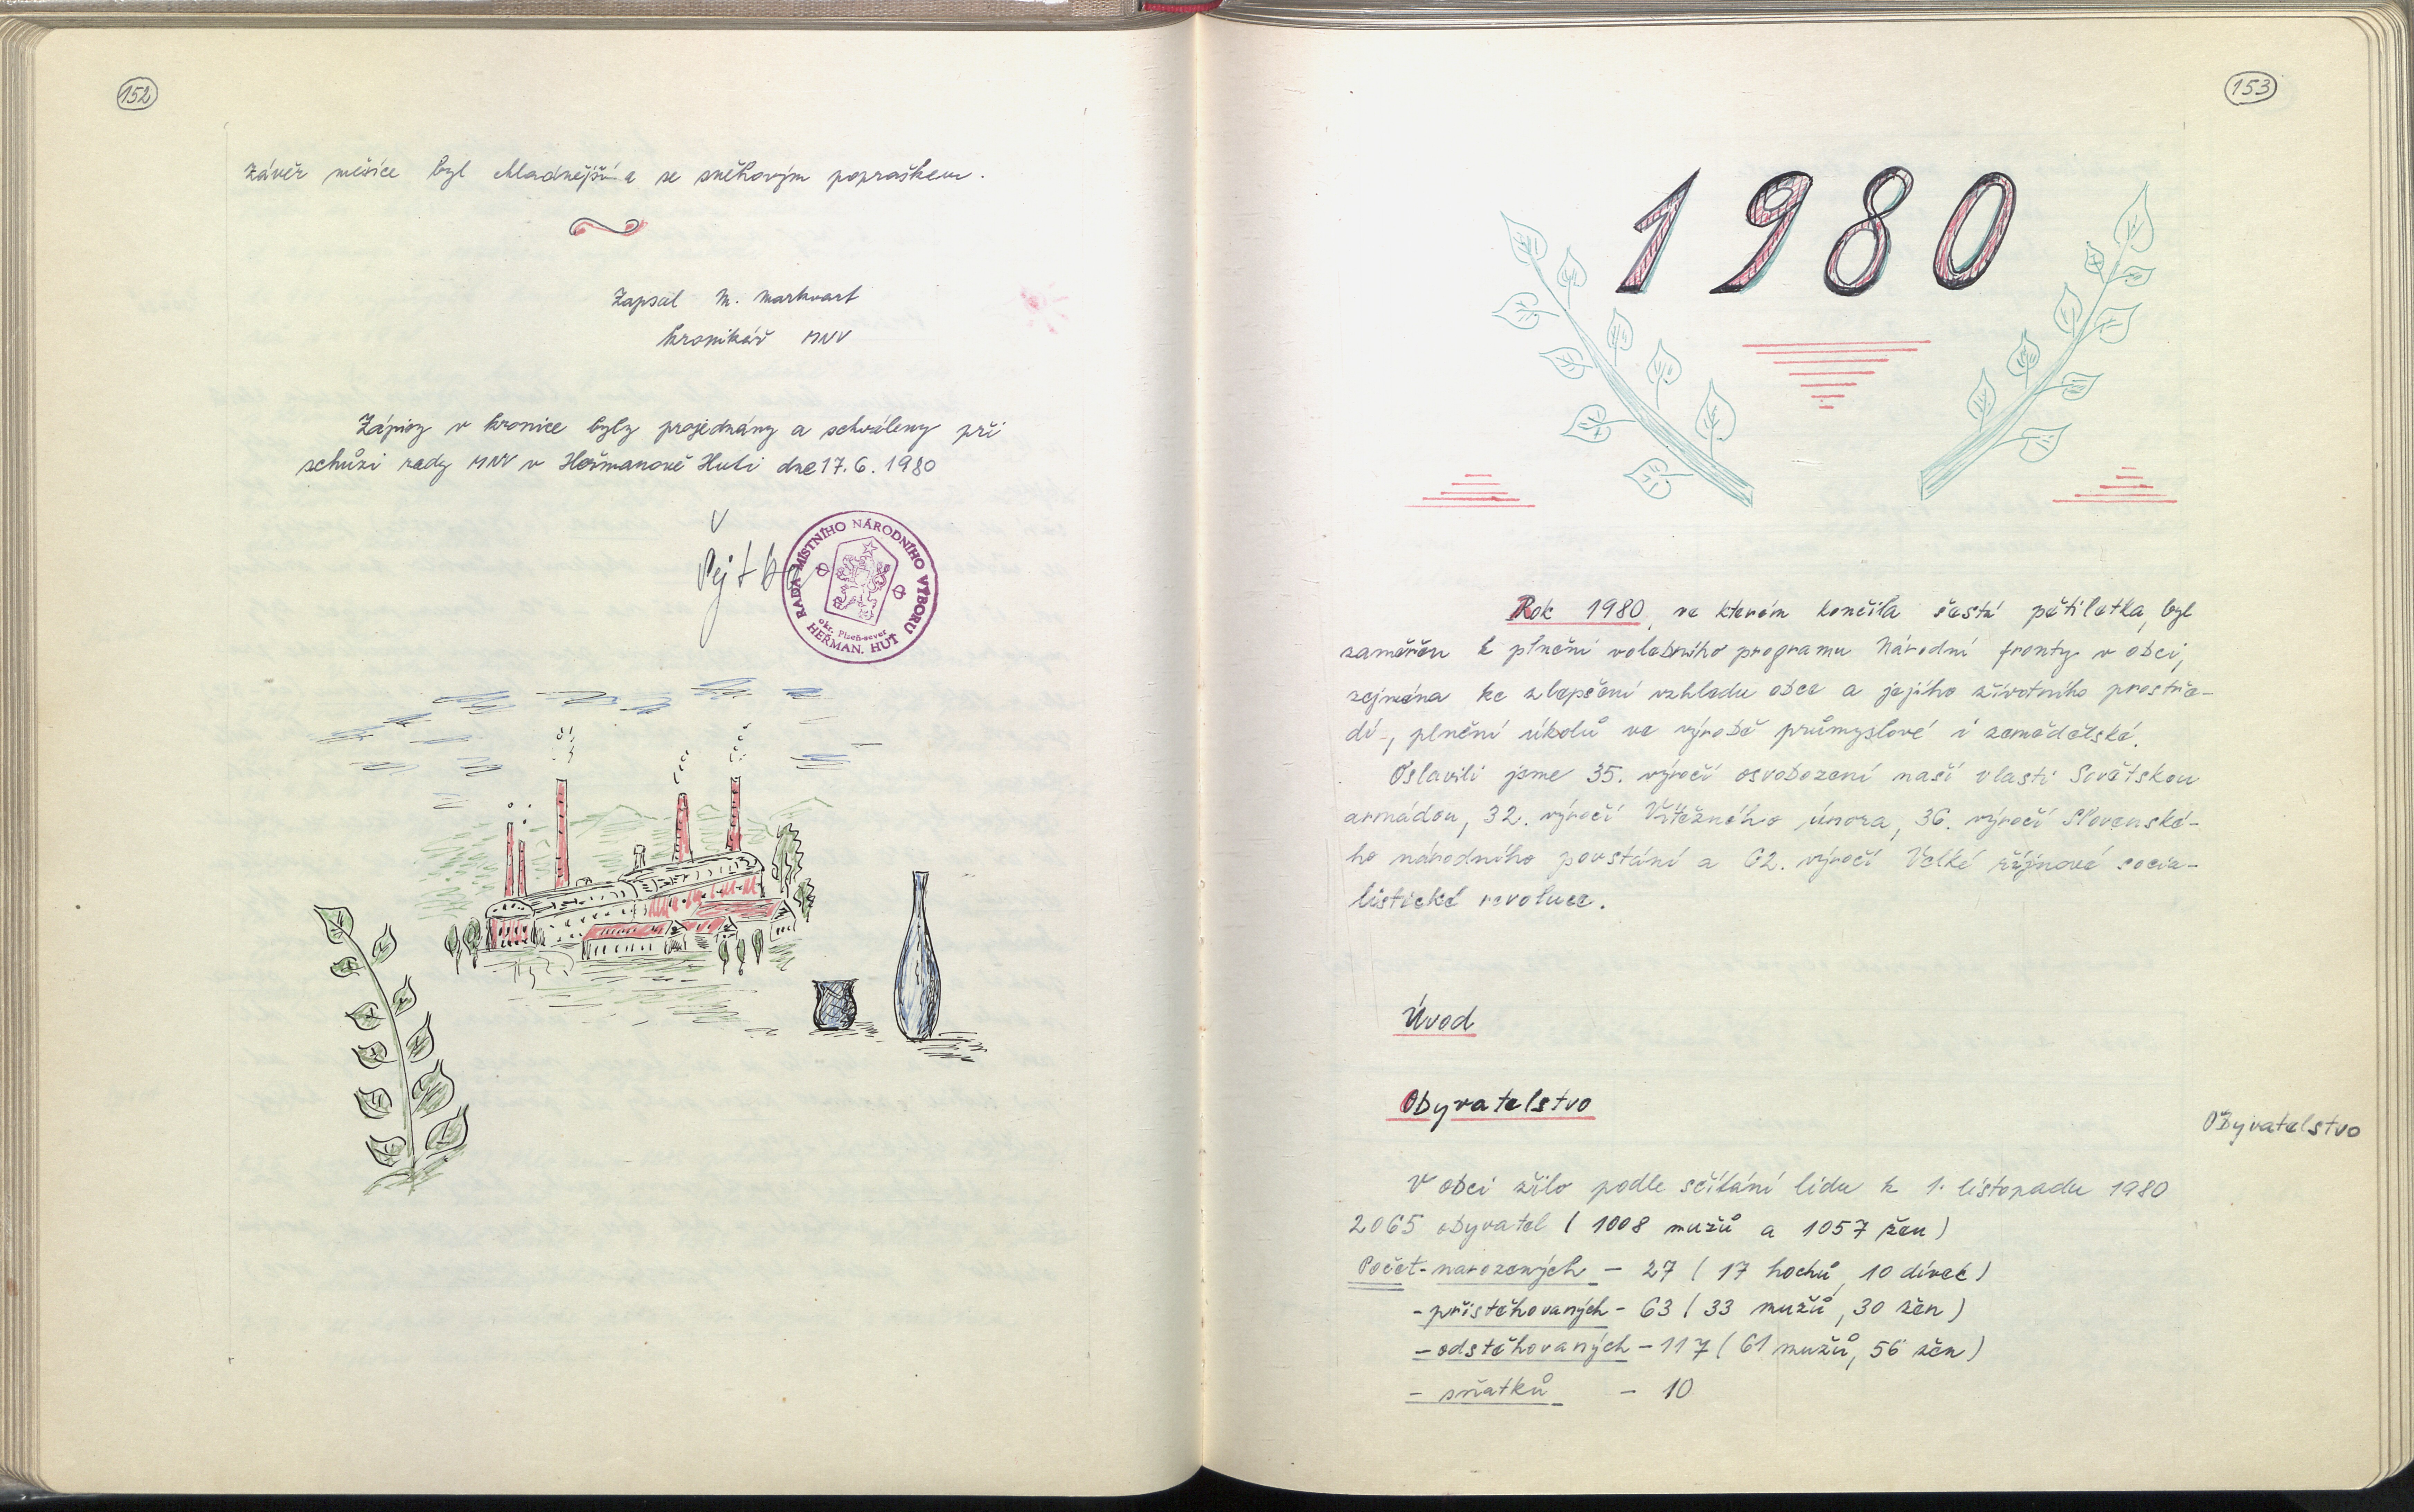 152
Závěr měsíce byl chladnější a se sněhovým popraškem.
Zapsal M. Markvart
kronikář MNV
Zápisy v kronice byly projednány a schváleny při
schůzi rady MNV v Heřmanově Huti dne 17. 6. 1980
RADA MÍSTNÍHO NÁRODNÍHO VÝBORU
okr. Plzeň-sever
HEŘMAN. HUŤ
153
1980
Rok 1980, ve kterém končila šestá pětiletka, byl
zaměřen k plnění volebního programu Národní fronty v obci,
zejména ke zlepšení vzhledu obce a jejího životního prostře-
dí, plnění úkolů ve výrobě průmyslové i zemědělské.
Oslavili jsme 35. výročí osvobození naší vlasti Sovětskou
armádou, 32. výročí Vítězného února, 36. výročí Slovenské-
ho národního povstání a 62. výročí Velké říjnové socia-
listické revoluce.
Úvod
Obyvatelstvo
Obyvatelstvo
V obci žilo podle sčítání lidu k 1. listopadu 1980
2065 obyvatel ( 1008 mužů a 1057 žen )
Počet - narozených - 27 ( 17 hochů, 10 dívek )
- přistěhovaných - 63 ( 33 mužů, 30 žen )
- odstěhovaných - 117 ( 61 mužů, 56 žen )
- sňatků - 10